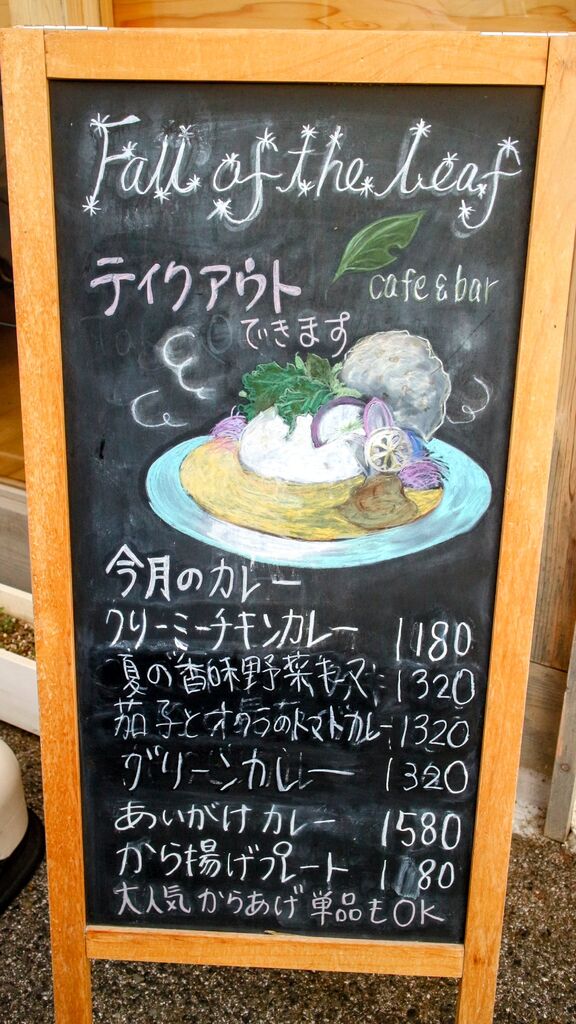 Fall of the Leaf
cafe & bar
テイクアウト
できます
今月のカレー
クリーミーチキンカレー 1180
夏の香味野菜キーマ 1320
茄子とオクラのトマトカレー 1320
グリーンカレー 1320
あいがけカレー 1580
から揚げプレート 1180
大人気からあげ単品もOK